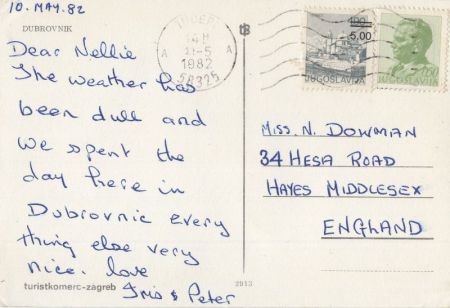 10. MAY. 82
DUBROVNIK
Dear Nellie
The weather has
been dull and
we spent the
day here in
Dubrovnic every
thing else very
nice. love
Iris & Peter
turistkomerc-zagreb
2913
tb
14 H
A 11-5 A
1982
58325
5,00
JUGOSLAVIJA
JUGOSLAVIJA
MISS. N. DOWMAN
34 HESA ROAD
HAYES MIDDLESEX
ENGLAND